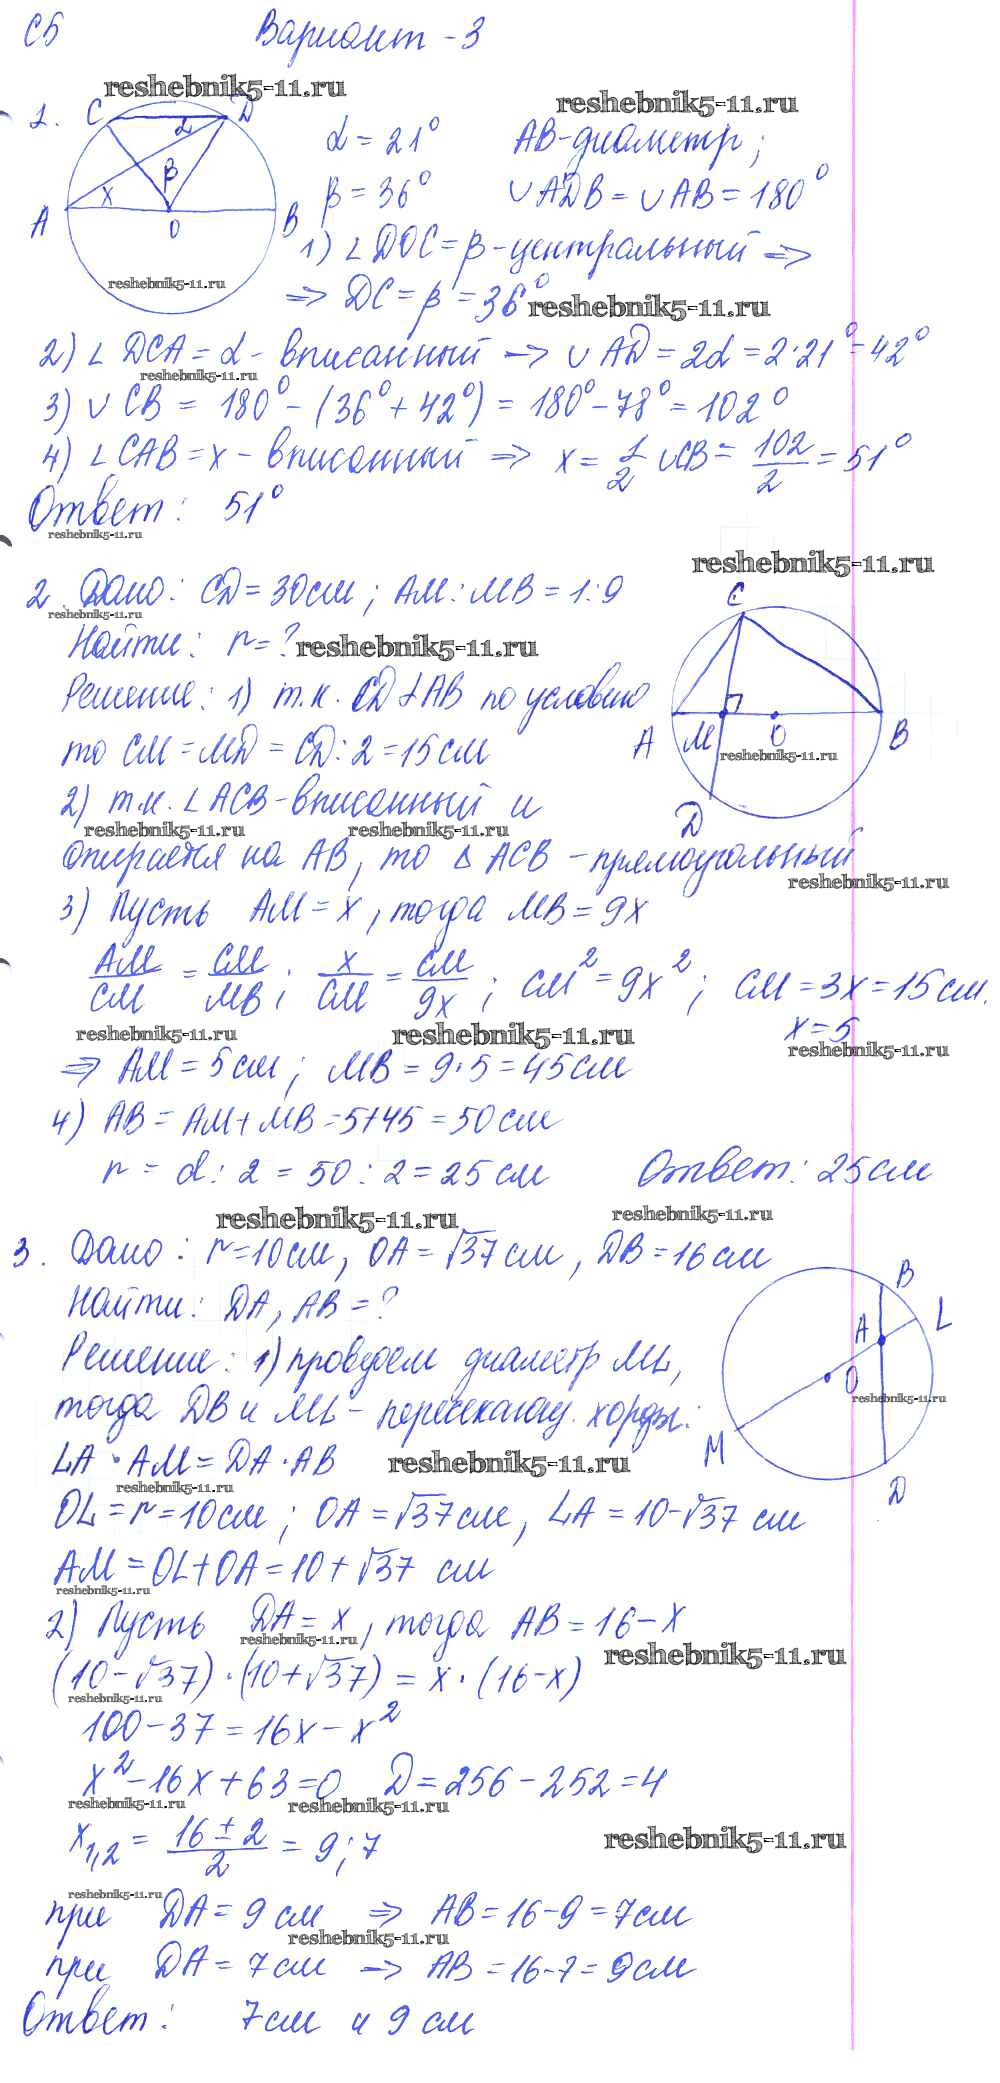 С5 Вариант - 3
reshebnik5-11.ru
reshebnik5-11.ru
1. C D α β x A O B
α = 21° AB - диаметр;
β = 36° ∪ADB = ∪AB = 180°
1) ∠DOC = β - центральный ⇒
reshebnik5-11.ru
⇒ DC = β = 36° reshebnik5-11.ru
2) ∠DCA = α - вписанный → ∪AD = 2α = 2·21° = 42°
reshebnik5-11.ru
3) ∪CB = 180° - (36° + 42°) = 180° - 78° = 102°
4) ∠CAB = x - вписанный ⇒ x = 1/2 ∪CB = 102/2 = 51°
Ответ: 51°
reshebnik5-11.ru
reshebnik5-11.ru
2. Дано: CD = 30см; AM : MB = 1:9
reshebnik5-11.ru
Найти: r = ? reshebnik5-11.ru
C A M O B D
reshebnik5-11.ru
Решение: 1) т.к. CD ⊥ AB по условию
то CM = MD = CD : 2 = 15 см
2) т.к. ∠ACB - вписанный и
reshebnik5-11.ru reshebnik5-11.ru
опирается на AB, то △ ACB - прямоугольный
reshebnik5-11.ru
3) Пусть AM = x, тогда MB = 9x
AM/CM = CM/MB; x/CM = CM/9x; CM² = 9x²; CM = 3x = 15 см.
x = 5
reshebnik5-11.ru reshebnik5-11.ru reshebnik5-11.ru
⇒ AM = 5 см; MB = 9·5 = 45 см
4) AB = AM + MB = 5+45 = 50 см
r = d : 2 = 50 : 2 = 25 см Ответ: 25 см
reshebnik5-11.ru reshebnik5-11.ru
3. Дано: r = 10 см, OA = √37 см, DB = 16 см
Найти: DA, AB = ?
B L A O M D
reshebnik5-11.ru
Решение: 1) проведем диаметр ML,
тогда DB и ML - пересекающ. хорды:
LA · AM = DA · AB reshebnik5-11.ru
reshebnik5-11.ru
OL = r = 10 см; OA = √37 см, LA = 10 - √37 см
AM = OL + OA = 10 + √37 см
reshebnik5-11.ru
2) Пусть DA = x, тогда AB = 16 - x
reshebnik5-11.ru reshebnik5-11.ru
(10 - √37) · (10 + √37) = x · (16 - x)
reshebnik5-11.ru
100 - 37 = 16x - x²
x² - 16x + 63 = 0 D = 256 - 252 = 4
reshebnik5-11.ru reshebnik5-11.ru
x1,2 = 16 ± 2/2 = 9; 7 reshebnik5-11.ru
reshebnik5-11.ru
при DA = 9 см ⇒ AB = 16 - 9 = 7 см
reshebnik5-11.ru
при DA = 7 см → AB = 16 - 7 = 9 см
Ответ: 7 см и 9 см